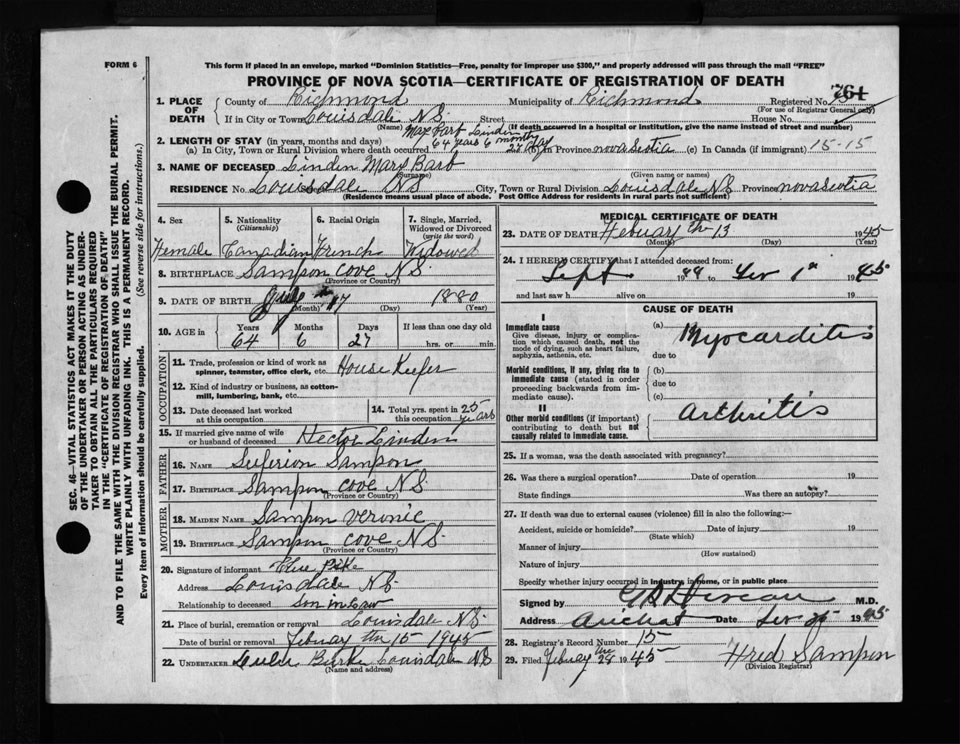 FORM 6
This form if placed in an envelope, marked "Dominion Statistics—Free, penalty for improper use $300," and properly addressed will pass through the mail "FREE"
PROVINCE OF NOVA SCOTIA—CERTIFICATE OF REGISTRATION OF DEATH
761
1. PLACE OF DEATH County of Richmond Municipality of Richmond Registered No.
(For use of Registrar General only)
If in City or Town Louisdale N.S. Street House No.
(Name) (If death occurred in a hospital or institution, give the name instead of street and number)
2. LENGTH OF STAY (in years, months and days) 64 years 6 months
(a) In City, Town or Rural Division where death occurred 27 day (b) In Province nova scotia (c) In Canada (if immigrant) 15-15
3. NAME OF DECEASED Linden Mary Barb
(Surname) (Given name or names)
RESIDENCE No. Louisdale NS City, Town or Rural Division Louisdale NS Province nova scotia
(Residence means usual place of abode. Post Office Address for residents in rural parts not sufficient)
4. Sex Female
5. Nationality (Citizenship) Canadian
6. Racial Origin French
7. Single, Married, Widowed or Divorced (write the word) Widowed
8. BIRTHPLACE Sampson Cove N.S.
(Province or Country)
9. DATE OF BIRTH 17 1880
(Month) (Day) (Year)
10. AGE in Years 64 Months 6 Days 27 If less than one day old hrs. or min.
OCCUPATION
11. Trade, profession or kind of work as spinner, teamster, office clerk, etc. House Keefer
12. Kind of industry or business, as cotton-mill, lumbering, bank, etc.
13. Date deceased last worked at this occupation
14. Total yrs. spent in this occupation 25 years
15. If married give name of wife or husband of deceased Hector Linden
FATHER
16. NAME Suferion Sampson
17. BIRTHPLACE Sampson cove N.S.
(Province or Country)
MOTHER
18. MAIDEN NAME Sampson Veronic
19. BIRTHPLACE Sampson cove N.S.
(Province or Country)
20. Signature of informant Pike
Address Louisdale N.S.
Relationship to deceased Son in Law
21. Place of burial, cremation or removal Louisdale N.S.
Date of burial or removal Febuary the 15 1945
22. UNDERTAKER Burke Louisdale NS
(Name and address)
MEDICAL CERTIFICATE OF DEATH
23. DATE OF DEATH Febuary the 13 1945
(Month) (Day) (Year)
24. I HEREBY CERTIFY that I attended deceased from:
Sept 19 to 1945
and last saw h alive on 19
CAUSE OF DEATH
I
Immediate cause
Give disease, injury or complication which caused death, not the mode of dying, such as heart failure, asphyxia, asthenia, etc.
(a) Myocarditis
due to
Morbid conditions, if any, giving rise to immediate cause (stated in order proceeding backwards from immediate cause).
(b)
due to
(c)
II
Other morbid conditions (if important) contributing to death but not causally related to immediate cause.
Arthritis
25. If a woman, was the death associated with pregnancy?
26. Was there a surgical operation? Date of operation 19
State findings Was there an autopsy?
27. If death was due to external causes (violence) fill in also the following:—
Accident, suicide or homicide? Date of injury 19
(State which)
Manner of injury
(How sustained)
Nature of injury
Specify whether injury occurred in industry, in home, or in public place
Signed by M.D.
Address Arichat Date 1945
28. Registrar's Record Number 15
29. Filed Febuary the 28 1945 Fred Sampson
(Division Registrar)
SEC. 46—VITAL STATISTICS ACT MAKES IT THE DUTY
OF THE UNDERTAKER OR PERSON ACTING AS UNDER-
TAKER TO OBTAIN ALL THE PARTICULARS REQUIRED
IN THE "CERTIFICATE OF REGISTRATION OF DEATH"
AND TO FILE THE SAME WITH THE DIVISION REGISTRAR WHO SHALL ISSUE THE BURIAL PERMIT.
WRITE PLAINLY WITH UNFADING INK. THIS IS A PERMANENT RECORD.
Every item of information should be carefully supplied. (See reverse side for instructions.)